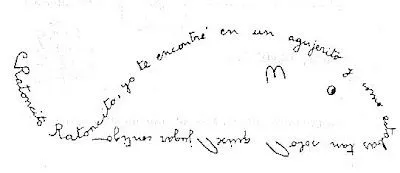 Ratoncito
Ratoncito, yo te encontré en un agujerito y como esta
bas tan solo quise jugar contigo